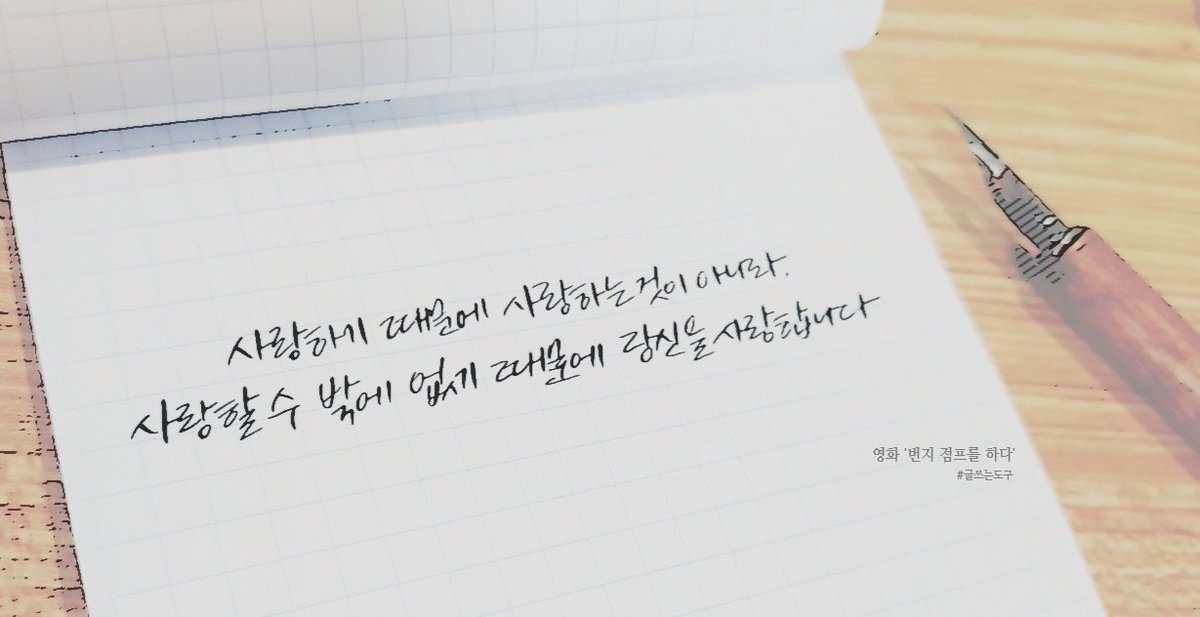 사랑하기 때문에 사랑하는것이 아니라.
사랑할 수 밖에 없기 때문에 당신을 사랑합니다
영화 '번지 점프를 하다'
#글쓰는도구